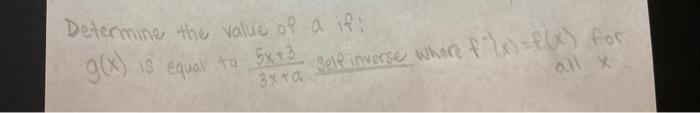 Determine the value of a if:
g(x) is equal to \frac{5x+3}{3x+a} self inverse where f⁻¹(x)=f(x) for all x.